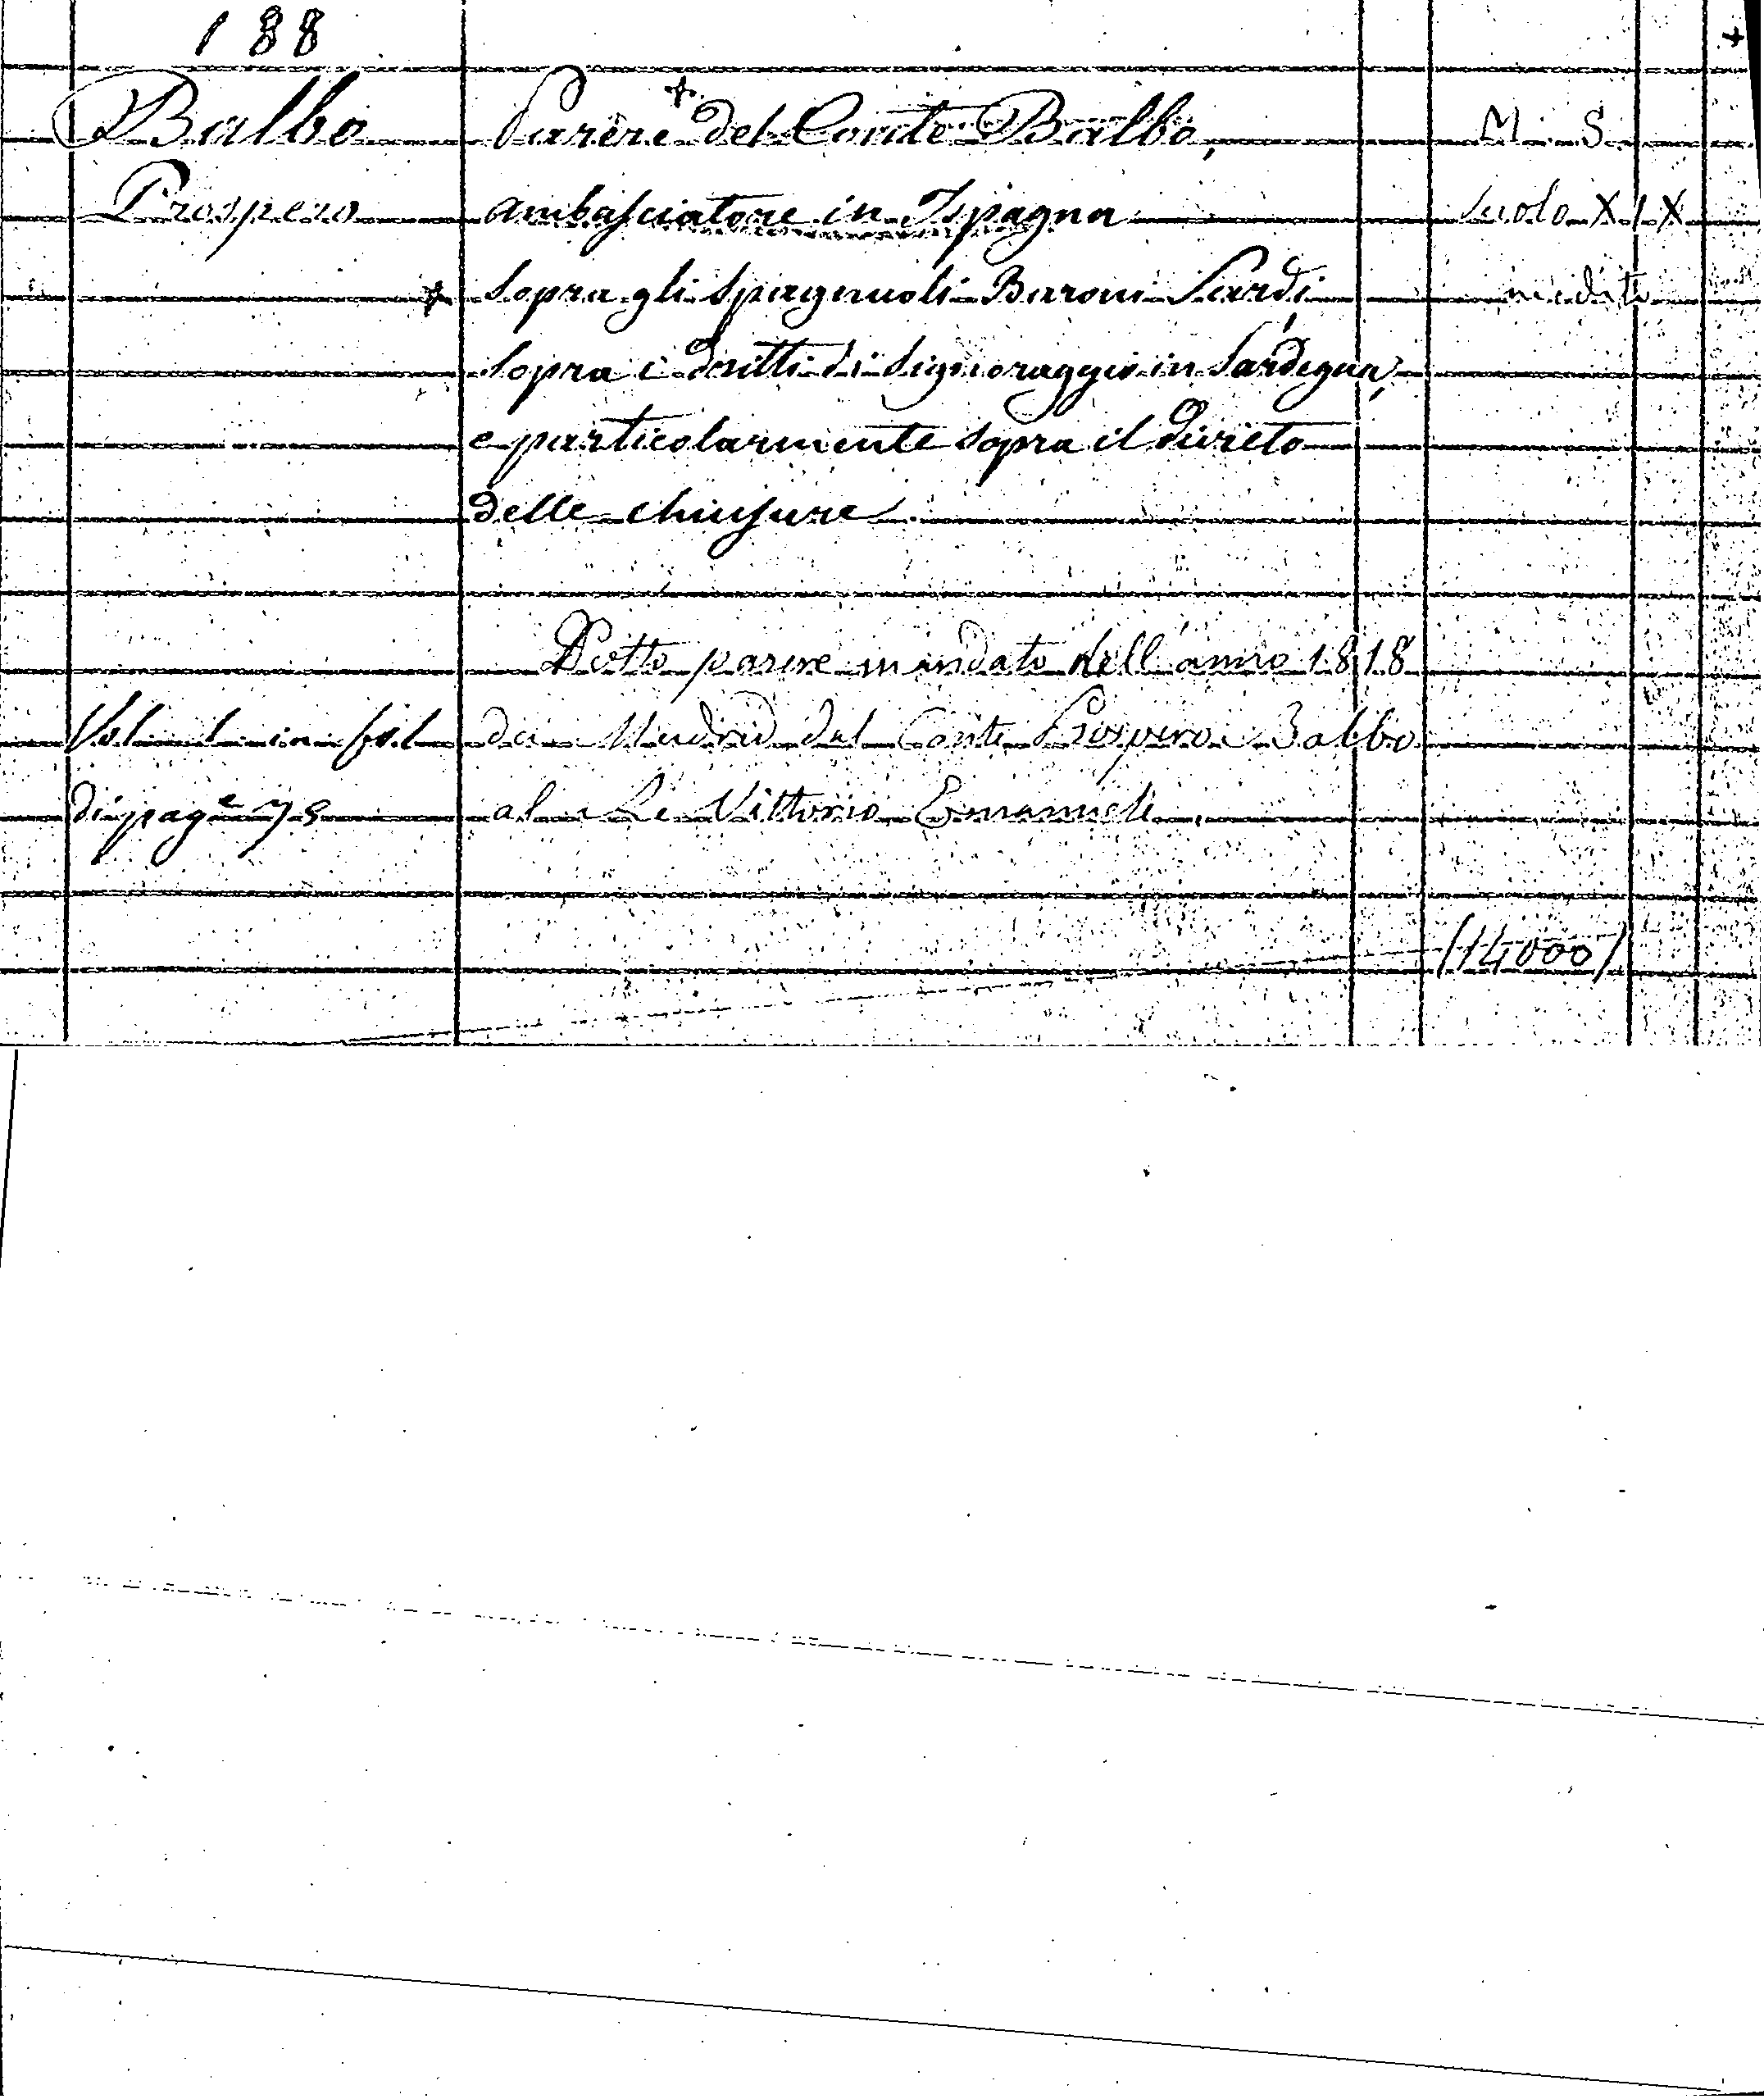 188
Balbo Parere del Conte Balbo, M. S.
Prospero ambasciatore in Ispagna Secolo XIX
sopra gli Spagnuoli Baroni Sardi inedito
sopra i dritti di Signoraggio in Sardegna,
e particolarmente sopra il diritto
delle chiusure.
Detto parere mandato dell'anno 1818
Vol. 1 in fol da Madrid dal Conte Prospero Balbo
di page 75 al Re Vittorio Emanuele.
(14000)